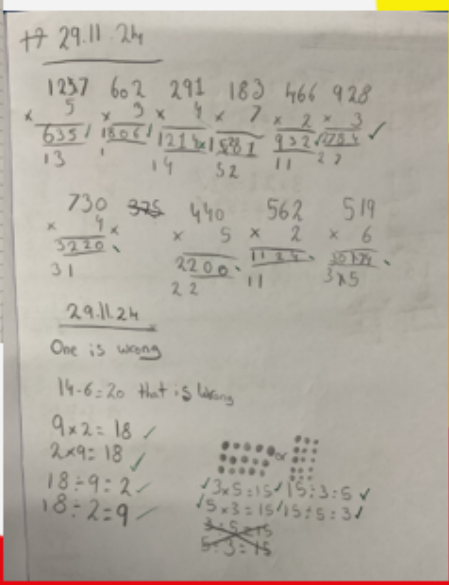 29.11.24
1257 602 291 183 466 928
× 5 × 3 × 4 × 7 × 2 × 3
635 1806 1214 1281 932 2784
13 1 14 52 11 22
730 375 440 562 519
× 4 × 5 × 2 × 6
3220 2200 1124
31 22 11 3×5
29.11.24
One is wrong
14-6=20 that is wrong
9×2=18 ✓
2×9=18 ✓
18÷9=2 ✓ or
18÷2=9 ✓ ✓3×5=15✓ 15÷3=5 ✓
✓5×3=15✓ 15÷5=3✓
3÷5=15
5÷3=15